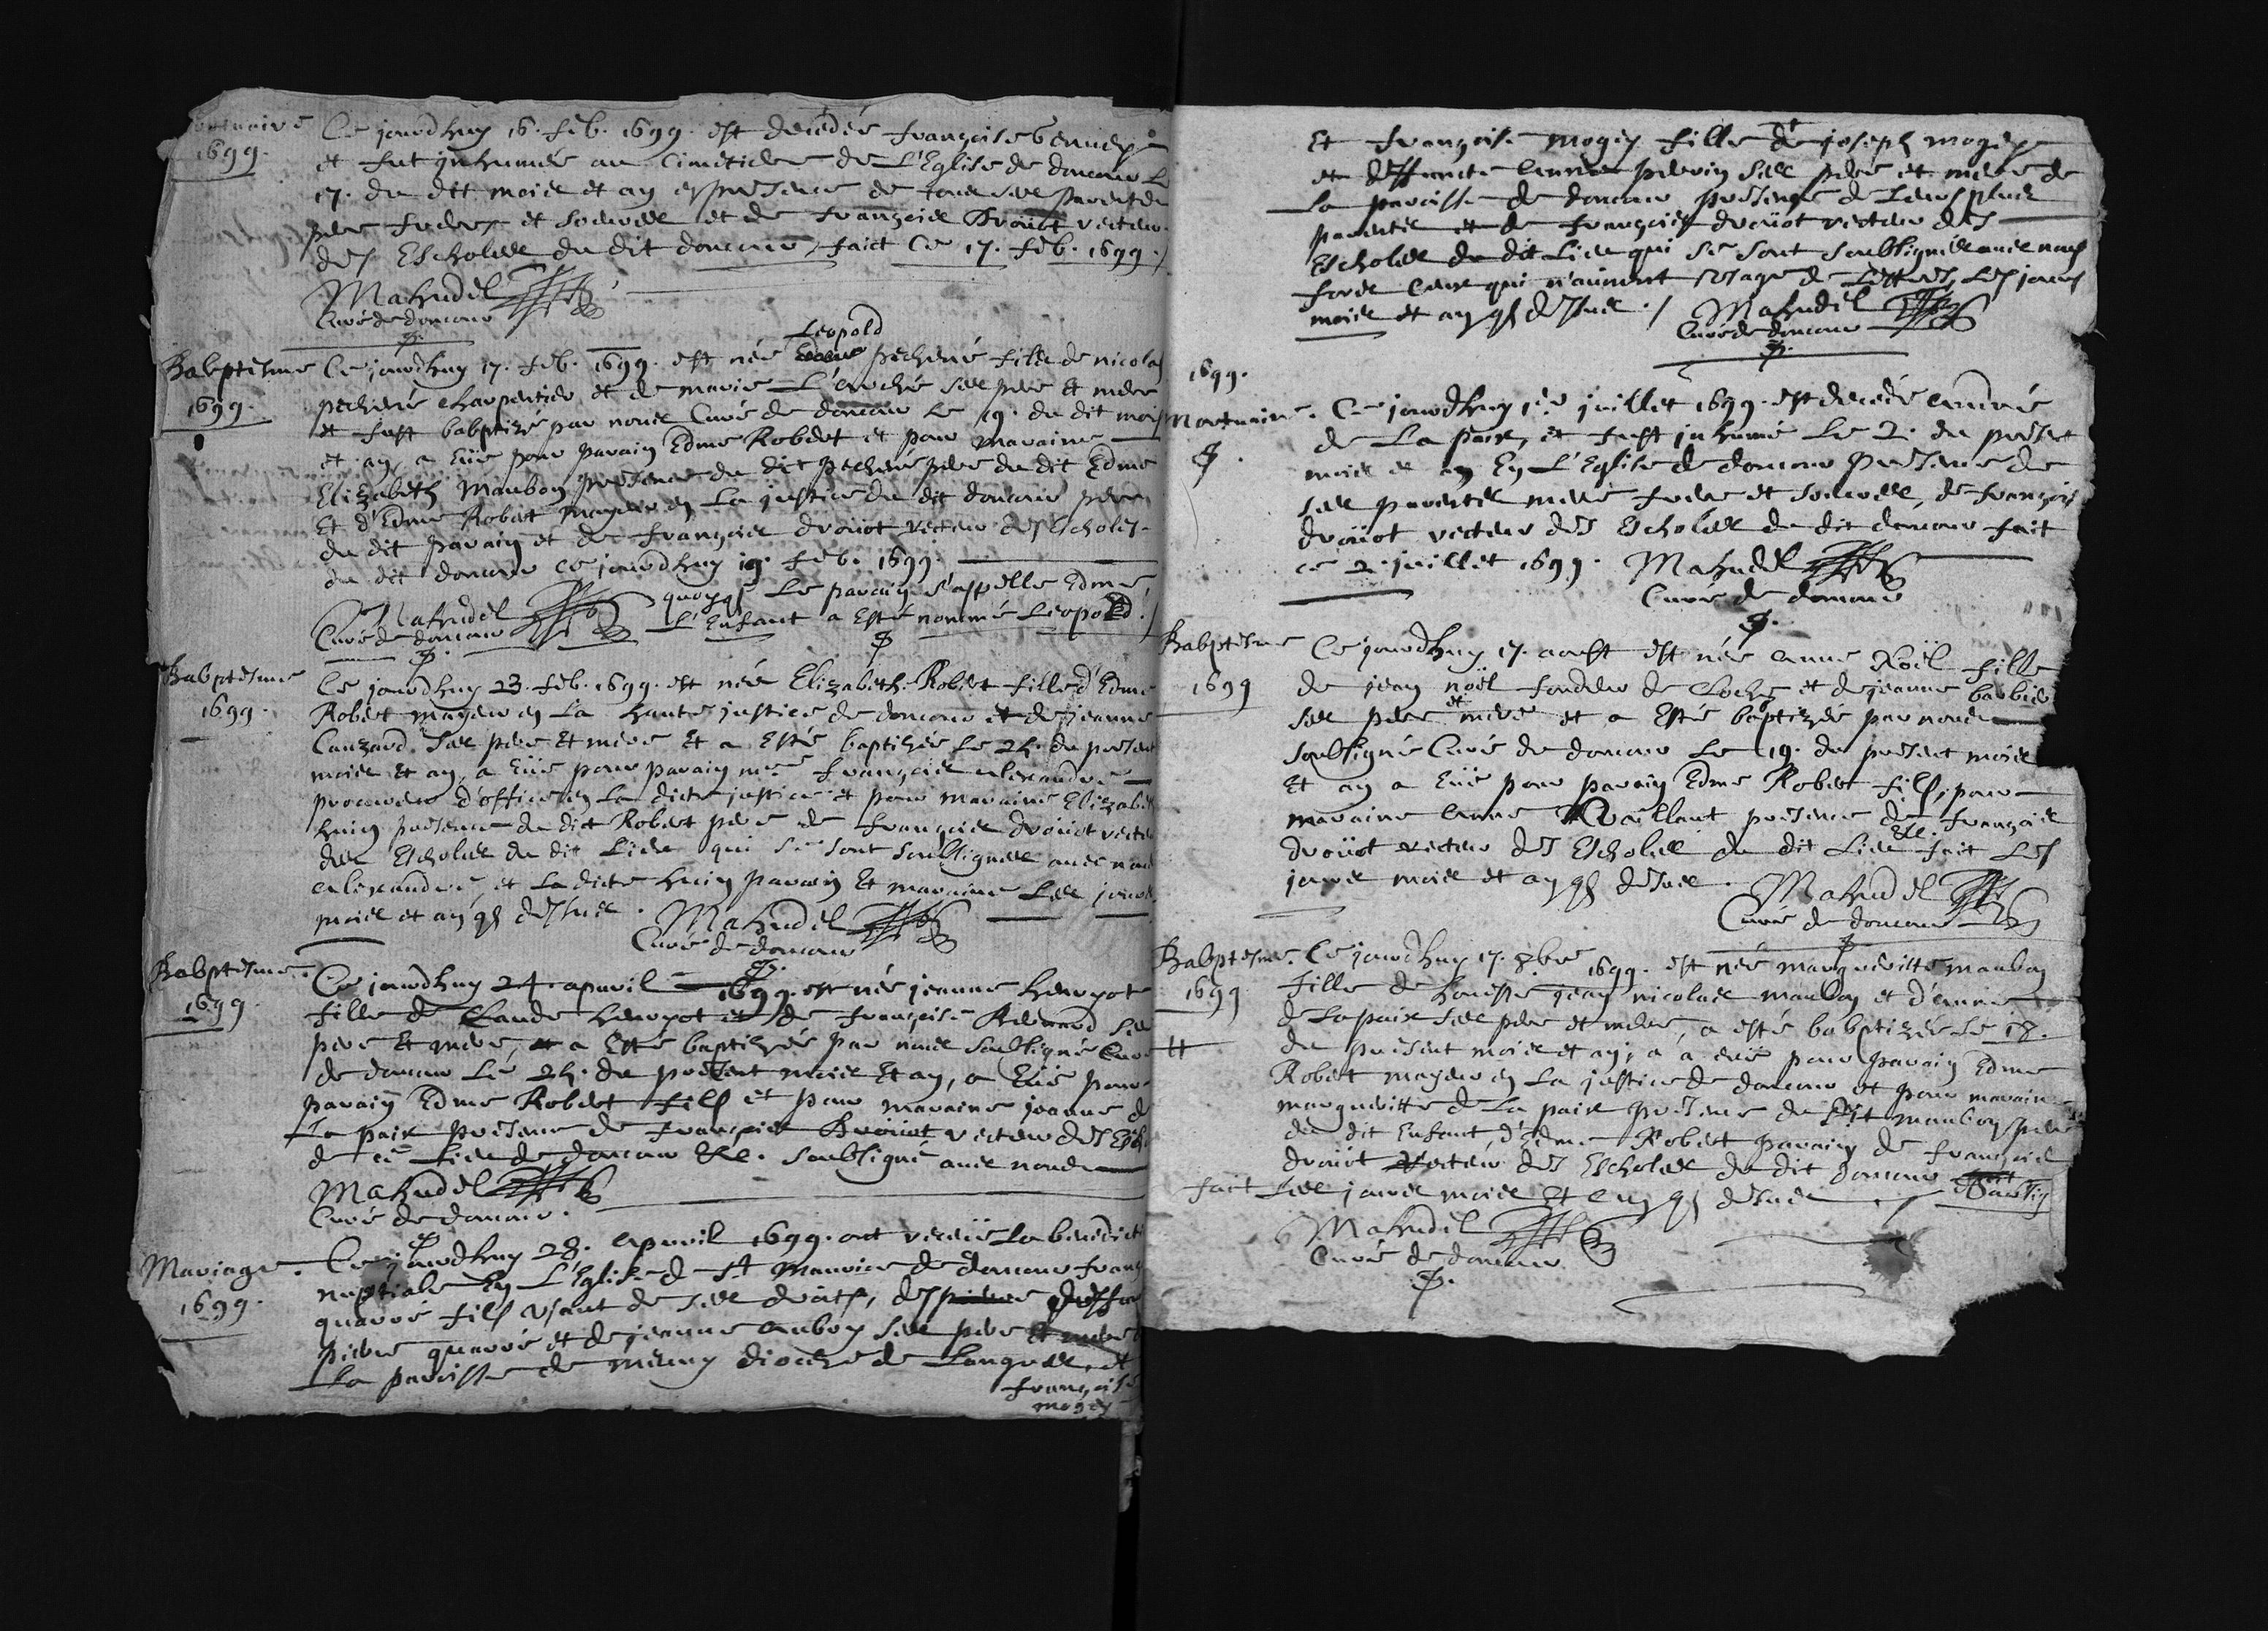 Mortuaire
1699.
Ce jourdhuy 16. feb. 1699. est decedée françoise
et fut inhumée au Cimetiere de L'Eglise de doncour Le
17. du dit mois et an en presence de tous ses parents
pere freres et soeures et de françois Drouot recteur
des Escholes du dit doncour, faict Ce 17. feb. 1699./
Mahudel
Curé de doncour
Babptesme
1699.
Leopold
Ce jourdhuy 17. feb. 1699. est née pechené fils de nicolas
pechené charpentier et de marie L'aroché ses pere et mere
et fust babptizé par nous Curé de doncour Le 19. du dit mois
et an, a eüe pour parain Edme Robert et pour maraine
Elizabeth Maubon presence du dit pechené pere du dit Edme
Et d'Edme Robert mayeur en La justice du dit doncour pere
du dit parain et de françois drouot recteur des Escholes
du dit doncour ce jourdhuy 19. feb. 1699.
quoyq Le parain s'appelle Edme
L'Enfant a Esté nommé Leopold./
Mahudel
Curé de doncour
Babptesme
1699.
Ce jourdhuy 23. feb. 1699. est née Elizabeth Robert fille d'Edme
Robert mayeur en La haute justice de doncour et de jeanne
Cauzard ses pere Et mere Et a Esté baptizée Le 25. du present
mois Et an, a Eüe pour parain mre françois alexandre
procureur d'office en La dicte justice et pour maraine Elizabeth
huin presence du dict Robert pere de françois drouot recteur
des Escholes du dit Lieu qui se sont soubsignes avec nous
alexandre, et La dicte huin parain Et maraine Les jours
mois et an q desus.
Mahudel
Curé de doncour
Babptesme.
1699.
Ce jourdhuy 24 apuril 1699. est née jeanne henryot
fille de Claude henryot et de françoise Renard ses
pere Et mere, et a Esté baptizée par nous soubsigné Curé
de doncour Le 25. du present mois Et an, a Eüe pour
parain Edme Robert fils et pour maraine jeanne de
La paix presence de françois Drouot recteur des Escho
de ce Lieu de doncour &c. soubsigné avec nous
Mahudel
Curé de doncour.
Mariage.
1699.
Ce jourdhuy 28. apuril 1699. ont receü La benedicti
nuptiale En L'Eglise de St Maurice de doncour franç
quarré fils usant de ses droits, de
pierre quarré et de jeanne aubry ses pere Et mere
La paroisse de meuvy diocese de Langres, et
françoise
mogey
et françoise mogey fille de joseph mogey
et deffuncte anne perrin ses pere et mere de
La paroisse de doncour presence de Leurs plus
parents et de françois drouot recteur des
Escholes du dit Lieu qui se sont soubsignés avec nous
fors Ceux qui n'auvient l'usage de Lettres, Les jours
mois et an q desus./
Mahudel
Curé de doncour
1699.
Mortuaire.
Ce jourdhuy 1er juillet 1699. est decedé andré
de La paix, et fust inhumé Le 2. du present
mois et an En L'Eglise de doncour presence de
ses parents mere frere et soeures, de françois
drouot recteur des Escholes du dit doncour fait
ce 2. juillet 1699.
Mahudel
Curé de doncour
Babptesme
1699
Ce jourdhuy 17. aoust est née anne Noël fille
de jean noël fondeur de Cloche et de jeanne barbier
ses pere et mere et a Esté baptizée par nous
soubsigné Curé de doncour Le 19. du present mois
Et an a Eüe pour parain Edme Robert fils, pour
maraine anne Vaillant presence de françois
drouot recteur des Escholes du dit Lieu &c. fait Les
jours mois et an q desus.
Mahudel
Curé de doncour
Babptesme.
1699
Ce jourdhuy 17. 8bre 1699. est née margueritte maubon
fille de honeste jean nicolas maubon et d'anne
de La paix ses pere et mere, a esté babptizée Le 18.
du present mois et an, a eüe pour parain Edme
Robert mayeur en La justice de doncour et pour maraine
margueritte de La paix presence du dit maubon pere
du dit Enfant, d'Edme Robert parain de françois
drouot recteur des Escholes du dit doncour
fait Les jours mois Et an q desus./
Mahudel
Curé de doncour